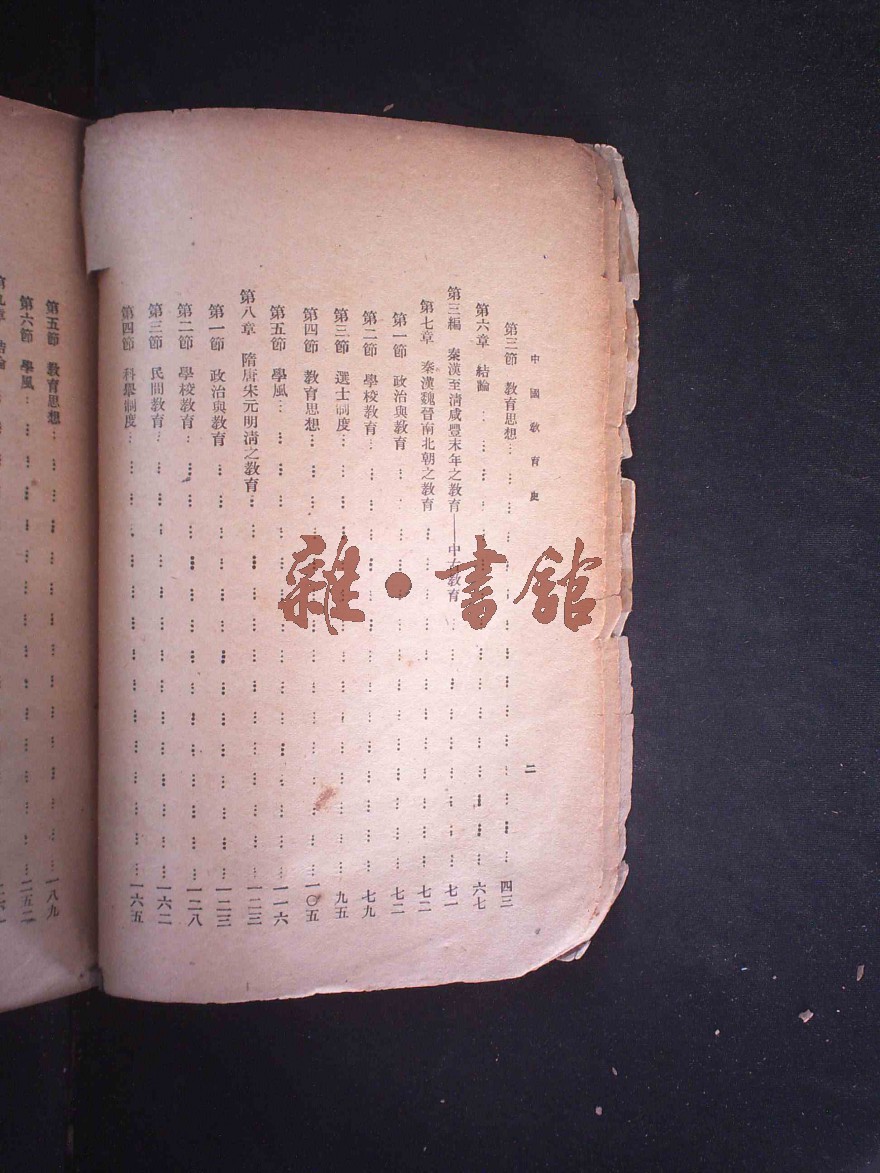 中國教育史
二
第三節 教育思想 四三
第六章 結論 六七
第三編 秦漢至清咸豐末年之教育——中古教育 七一
第七章 秦漢魏晉南北朝之教育 七二
第一節 政治與教育 七二
第二節 學校教育 七九
第三節 選士制度 九五
第四節 教育思想 一〇五
第五節 學風 一一六
第八章 隋唐宋元明清之教育 一二三
第一節 政治與教育 一二三
第二節 學校教育 一二八
第三節 民間教育 一六二
第四節 科舉制度 一六五
第五節 教育思想 一八九
第六節 學風 二五二
第九章 結論
雜·書館